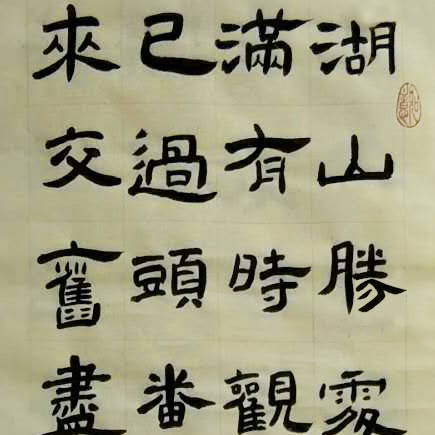 湖山勝處
滿有時觀
已過頭番
來交舊盡